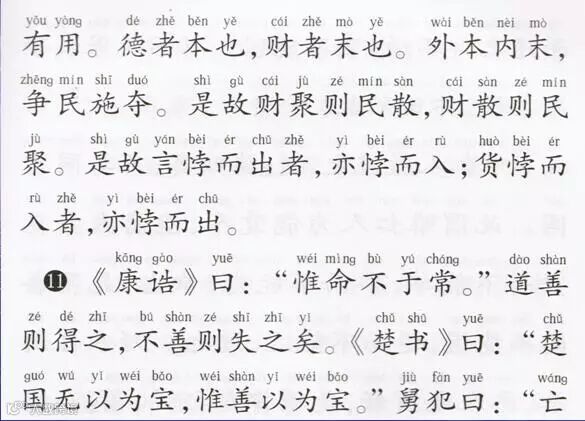 yǒu yòng dé zhě běn yě cái zhě mò yě wài běn nèi mò
有用。德者本也,财者末也。外本内末,
zhēng mín shī duó shì gù cái jù zé mín sàn cái sàn zé mín
争民施夺。是故财聚则民散,财散则民
jù shì gù yán bèi ér chū zhě yì bèi ér rù huò bèi ér
聚。是故言悖而出者,亦悖而入;货悖而
rù zhě yì bèi ér chū
入者,亦悖而出。
kāng gào yuē wéi mìng bù yú cháng dào shàn
⓫《康诰》曰:“惟命不于常。”道善
zé dé zhī bú shàn zé shī zhī yǐ chǔ shū yuē chǔ
则得之,不善则失之矣。《楚书》曰:“楚
guó wú yǐ wéi bǎo wéi shàn yǐ wéi bǎo jiù fàn yuē wáng
国无以为宝,惟善以为宝。”舅犯曰:“亡